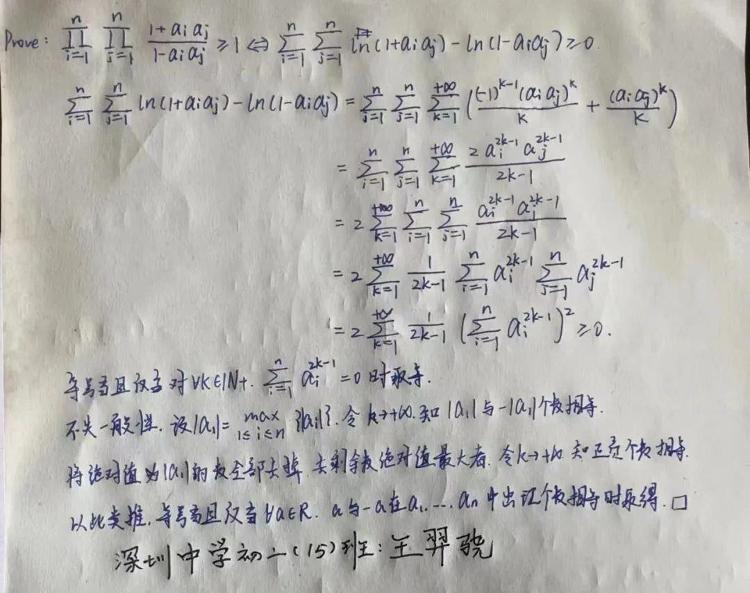 Prove: $\prod_{i=1}^{n} \prod_{j=1}^{n} \frac{1+a_i a_j}{1-a_i a_j} \geq 1 \Leftrightarrow \sum_{i=1}^{n} \sum_{j=1}^{n} \ln(1+a_i a_j) - \ln(1-a_i a_j) \geq 0.$
$\sum_{i=1}^{n} \sum_{j=1}^{n} \ln(1+a_i a_j) - \ln(1-a_i a_j) = \sum_{i=1}^{n} \sum_{j=1}^{n} \sum_{k=1}^{+\infty} \left( \frac{(-1)^{k-1}(a_i a_j)^k}{k} + \frac{(a_i a_j)^k}{k} \right)$
$= \sum_{i=1}^{n} \sum_{j=1}^{n} \sum_{k=1}^{+\infty} \frac{2 a_i^{2k-1} a_j^{2k-1}}{2k-1}$
$= 2 \sum_{k=1}^{+\infty} \sum_{i=1}^{n} \sum_{j=1}^{n} \frac{a_i^{2k-1} a_j^{2k-1}}{2k-1}$
$= 2 \sum_{k=1}^{+\infty} \frac{1}{2k-1} \sum_{i=1}^{n} a_i^{2k-1} \sum_{j=1}^{n} a_j^{2k-1}$
$= 2 \sum_{k=1}^{+\infty} \frac{1}{2k-1} \left( \sum_{i=1}^{n} a_i^{2k-1} \right)^2 \geq 0.$
等号当且仅当对 $\forall k \in \mathbb{N}+$. $\sum_{i=1}^{n} a_i^{2k-1} = 0$ 时取等.
不失一般性. 设 $|a_1| = \max_{1 \leq i \leq n} \{|a_i|\}$. 令 $k \to +\infty$. 知 $|a_1|$ 与 $-|a_1|$ 个数相等.
将绝对值为 $|a_1|$ 的数全部去掉. 去剩余数绝对值最大者. 令 $k \to +\infty$ 知正负个数相等.
以此类推. 等号当且仅当 $\forall a \in R$. $a$ 与 $-a$ 在 $a_1, \dots, a_n$ 中出现个数相等时取得. □
深圳中学初二(15)班: 王羿骁